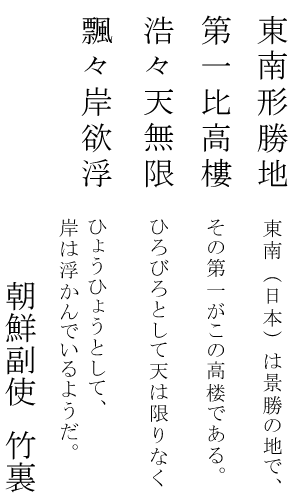 東南形勝地
第一比高樓
浩々天無限
飄々岸欲浮
東南（日本）は景勝の地で、
その第一がこの高楼である。
ひろびろとして天は限りなく
ひょうひょうとして、
岸は浮かんでいるようだ。
朝鮮副使　竹裏